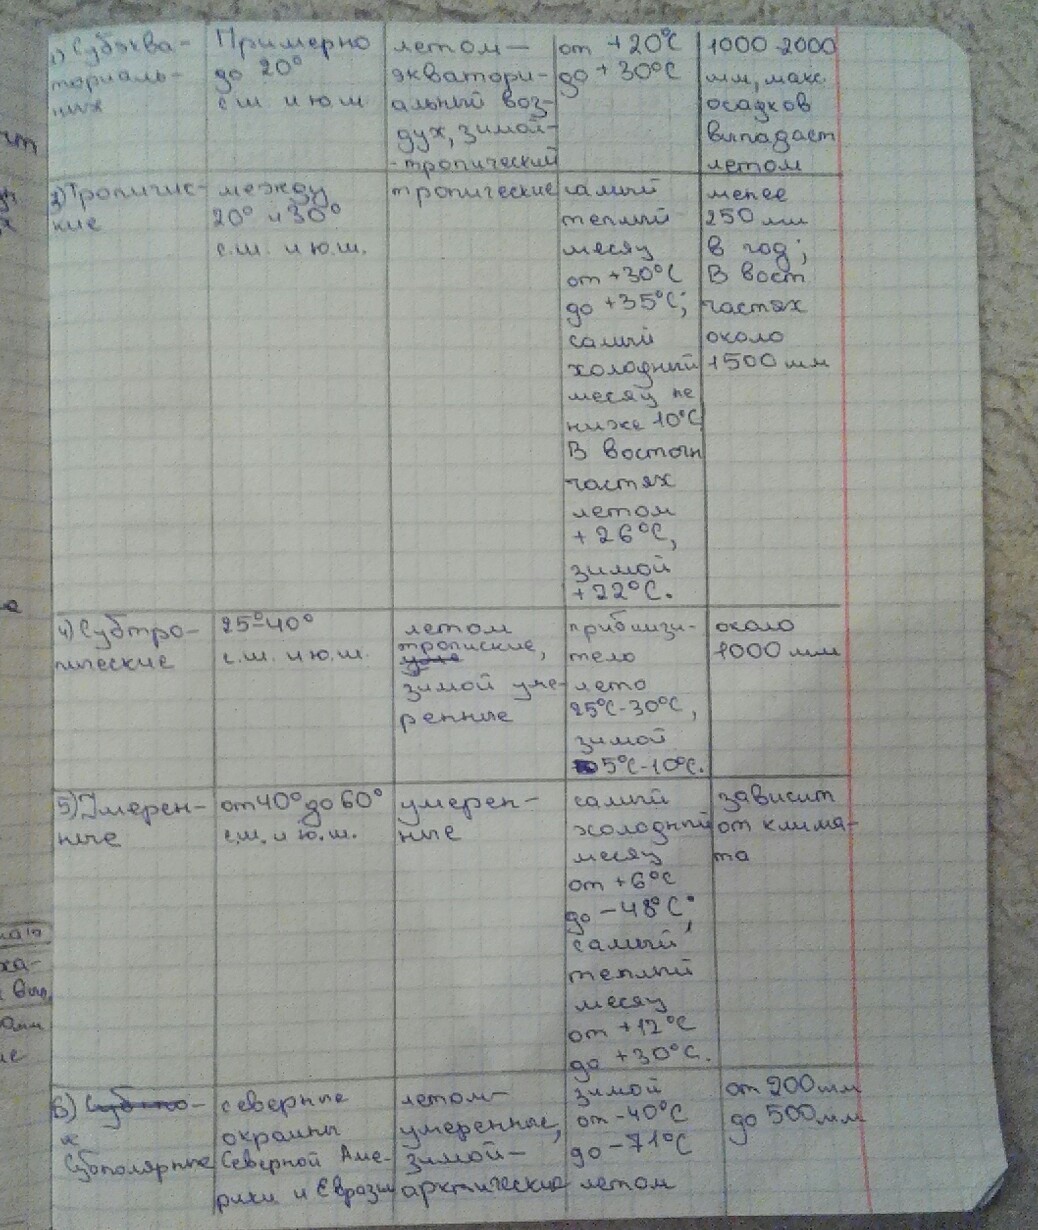 Субэква-
ториаль-
ных
Примерно
до 20°
с.ш. и ю.ш.
летом —
экватори-
альный воз-
дух, зимой-
-тропический
от +20°C
до +30°C
1000-2000
мм, макс
осадков
выпадает
летом
3) Тропичес-
кие
между
20° и 30°
с.ш. и ю.ш.
тропические
самый
теплый
месяц
от +30°C
до +35°C;
самый
холодный
месяц не
ниже 10°C
В восточн
частях
летом
+26°C,
зимой
+22°C.
менее
250 мм
в год;
В вост
частях
около
1500 мм
4) Субтро-
пические
25°-40°
с.ш. и ю.ш.
летом
тропиские,
зимой уме-
ренные
приблизи-
тело
лето
25°C-30°C,
зимой
5°C-10°C.
около
1000 мм
5) Умерен-
ные
от 40° до 60°
с.ш. и ю.ш.
умерен-
ные
самый
холодный
месяц
от +6°C
до -48°C;
самый
теплый
месяц
от +12°C
до +30°C.
зависит
от клима-
та
6)
Субполярные
северные
окраины
Северной Аме-
рики и Евразии
летом-
умеренные,
зимой-
арктические
зимой
от -40°C
до -71°C
летом
от 200 мм
до 500 мм